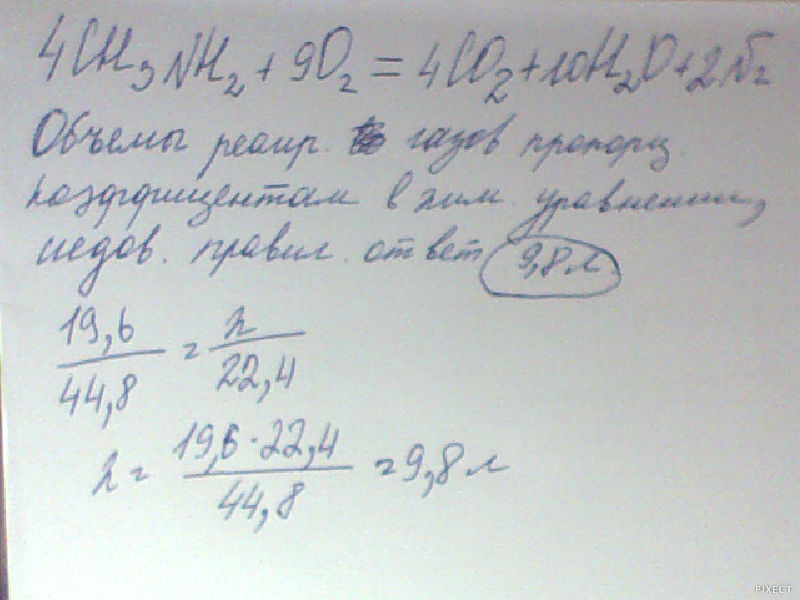 4CH₃NH₂ + 9O₂ = 4CO₂ + 10H₂O + 2N₂
Объемы реагир. газов пропорц.
коэффициентам в хим. уравнении,
следов. правил. ответ 9,8 л.
19,6/44,8 = x/22,4
x = 19,6·22,4/44,8 = 9,8 л
PIXECT